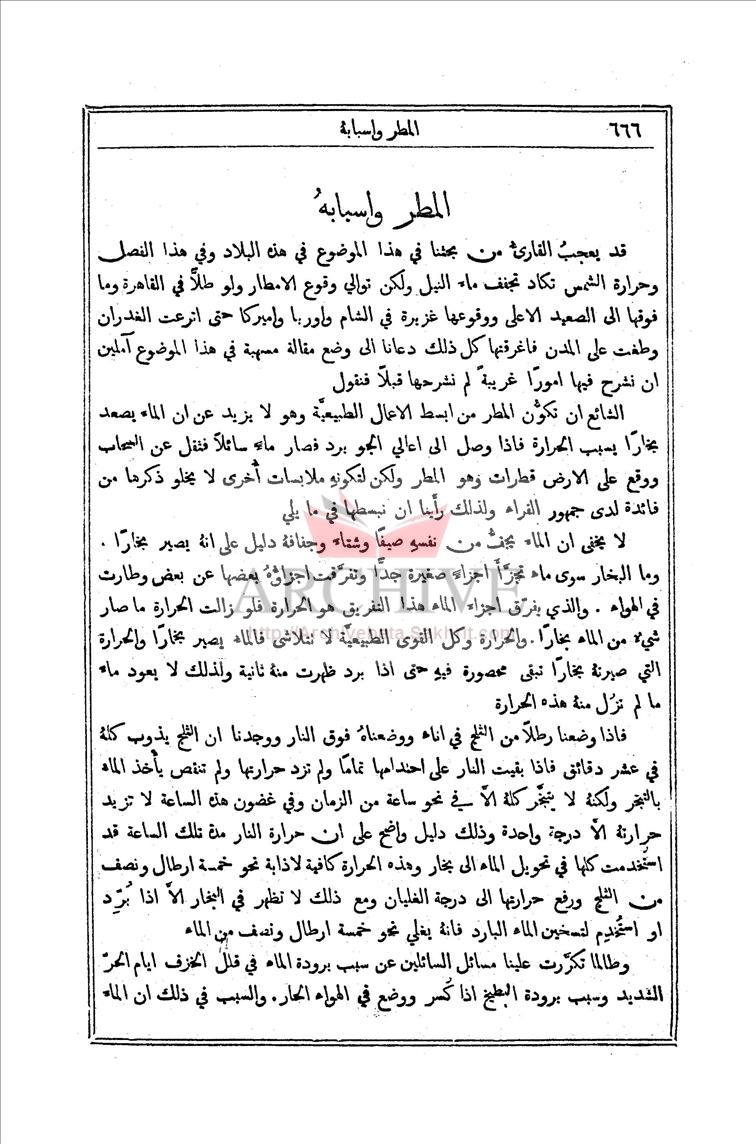 ٦٦٦
المطر واسبابهُ
المطر واسبابهُ
قد يعجبُ القارئُ من بحثنا في هذا الموضوع في هذه البلاد وفي هذا الفصل
وحرارة الشمس تكاد تجفف ماء النيل ولكن توالي وقوع الامطار ولو طلاًّ في القاهرة وما
فوقها الى الصعيد الاعلى ووقوعها غزيرة في الشام واوربا واميركا حتى اترعت الغدران
وطفت على المدن فاغرقتها كل ذلك دعانا الى وضع مقالة مسهبة في هذا الموضوع آملين
ان نشرح فيها امورًا غريبةً لم نشرحها قبلاً فنقول
الشائع ان تكوُّن المطر من ابسط الاعمال الطبيعيَّة وهو لا يزيد عن ان الماء يصعد
بخارًا بسبب الحرارة فاذا وصل الى اعالي الجو برد فصار ماءً سائلاً فثقل عن السحاب
ووقع على الارض قطرات وهو المطر ولكن لتكونهِ ملابسات أُخرى لا يخلو ذكرها من
فائدة لدى جمهور القراء ولذلك رأينا ان نبسطها في ما يلي
لا يخفى ان الماء يجفُّ من نفسهِ صيفًا وشتاء وجفافهُ دليل على انهُ يصير بخارًا .
وما البخار سوى ماء تجزَّأَ اجزاءً صغيرة جدًّا وتفرَّقت اجزاؤهُ بعضها عن بعض وطارت
في الهواء . والذي يفرّق اجزاء الماء هذا التفريق هو الحرارة فلو زالت الحرارة ما صار
شيءٌ من الماء بخارًا . والحرارة وكل القوى الطبيعيَّة لا نتلاشى فالماء يصير بخارًا والحرارة
التي صيرتهُ بخارًا تبقى محصورة فيهِ حتى اذا برد ظهرت منهُ ثانية ولذلك لا يعود ماء
ما لم تزُل منهُ هذه الحرارة
فاذا وضعنا رطلاً من الثلج في اناء ووضعناهُ فوق النار ووجدنا ان الثلج يذوب كلهُ
في عشر دقائق فاذا بقيت النار على احتدامها تمامًا ولم تزد حرارتها ولم تنقص يأخذ الماء
بالتبخر ولكنهُ لا يتبخَّر كلهُ الاَّ في نحو ساعة من الزمان وفي غضون هذه الساعة لا تزيد
حرارتهُ الاَّ درجة واحدة وذلك دليل واضح على ان حرارة النار مدة تلك الساعة قد
استُخدمت كلها في تحويل الماء الى بخار وهذه الحرارة كافية لاذابة نحو خمسة ارطال ونصف
من الثلج ورفع حرارتها الى درجة الغليان ومع ذلك لا تظهر في البخار الاَّ اذا بُرّد
او استُخدِم لتسخين الماء البارد فانهُ يغلي نحو خمسة ارطال ونصف من الماء
وطالما تكرَّرت علينا مسائل السائلين عن سبب برودة الماء في قلل الخزف ايام الحرّ
الشديد وسبب برودة البطيخ اذا كُسر ووضع في الهواء الحار . والسبب في ذلك ان الماء
ARCHIVE
http://Archivebeta.Sakhrit.com